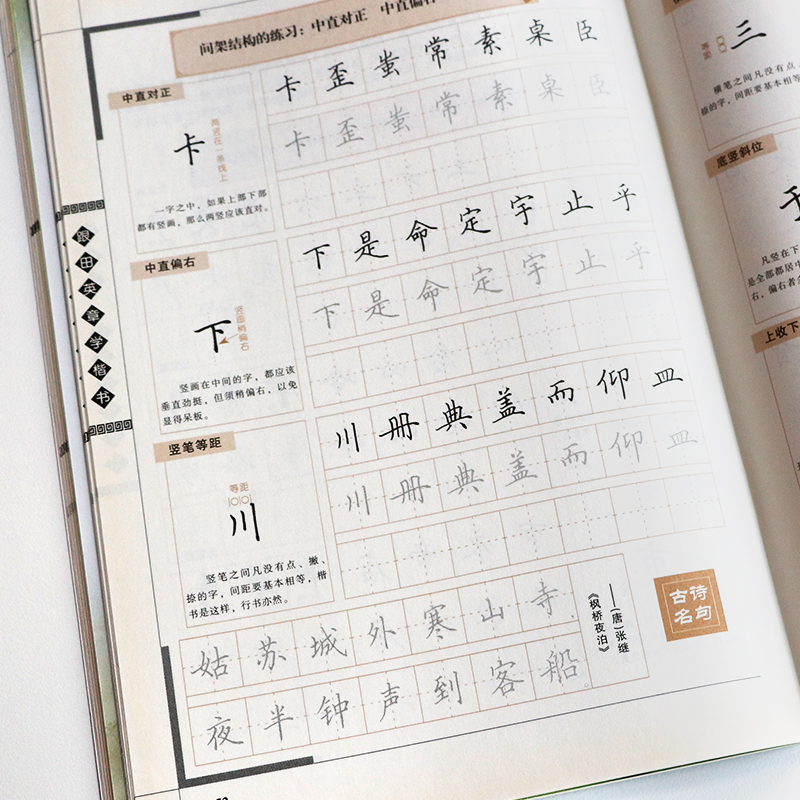 间架结构的练习：中直对正 中直偏右
中直对正
卡
两竖在一条线上
一字之中，如果上部下部
都有竖画，那么两竖应该直对。
卡歪蚩常素桌臣
卡歪蚩常素桌臣
中直偏右
下
竖画稍偏右
竖画在中间的字，都应该
垂直劲挺，但须稍偏右，以免
显得呆板。
下是命定宇止乎
下是命定宇止乎
竖笔等距
等距
川
竖笔之间凡没有点、撇、
捺的字，间距要基本相等，楷
书是这样，行书亦然。
川册典盖而仰皿
川册典盖而仰皿
姑苏城外寒山寺
夜半钟声到客船
——（唐）张继
《枫桥夜泊》
古诗
名句
跟田英章学楷书
等距
三
横笔之间凡没有点、
捺的字，间距要基本相
底竖斜位
凡竖在下
是全部都居中
右，偏右者
上收下